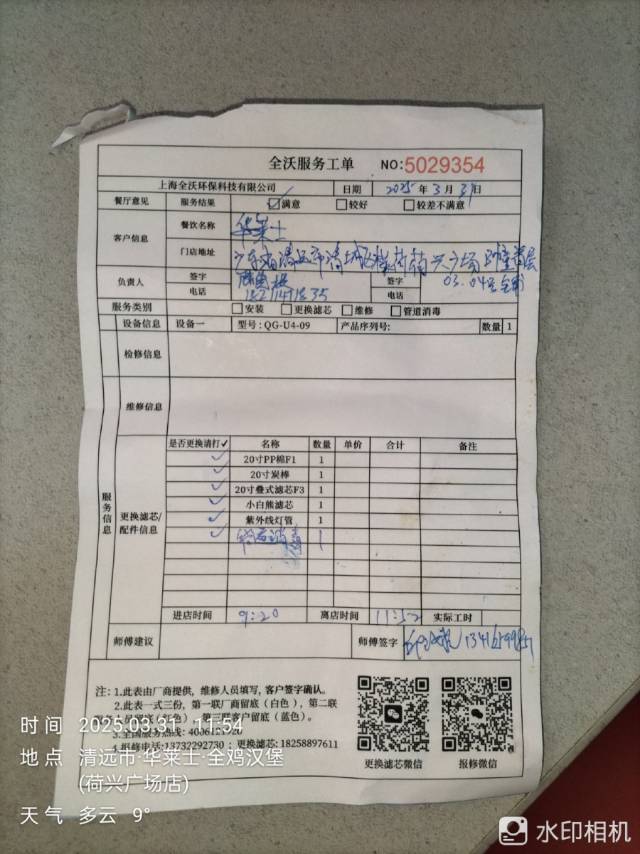 全沃服务工单 NO:5029354
上海全沃环保科技有限公司 日期 2025年3月31日
餐厅意见 服务结果 ☑满意 □较好 □较差不满意
客户信息 餐饮名称 华莱士
门店地址 广东省清远市清城区 兴广场 首层
03.04号
负责人 签字 签字
电话 电话
服务类别 □安装 □更换滤芯 □维修 □管道消毒
设备信息 设备一 型号:QG-U4-09 产品序列号: 数量 1
检修信息
维修信息
服务信息
更换滤芯/配件信息
是否更换请打✓ 名称 数量 单价 合计 备注
✓ 20寸PP棉F1 1
✓ 20寸炭棒 1
✓ 20寸叠式滤芯F3 1
✓ 小白熊滤芯 1
✓ 紫外线灯管 1
✓ 消毒 1
进店时间 9:20 离店时间 11:52 实际工时
师傅建议 师傅签字
注:1.此表由厂商提供,维修人员填写,客户签字确认。
2.此表一式三份,第一联厂商留底(白色),第二联
客户留底(蓝色)。
3.全国服务热线:
4.报修电话:13732292730;更换滤芯:18258897611
更换滤芯微信 报修微信
时间 2025.03.31 11:54
地点 清远市·华莱士·全鸡汉堡
(荷兴广场店)
天气 多云 9°
水印相机